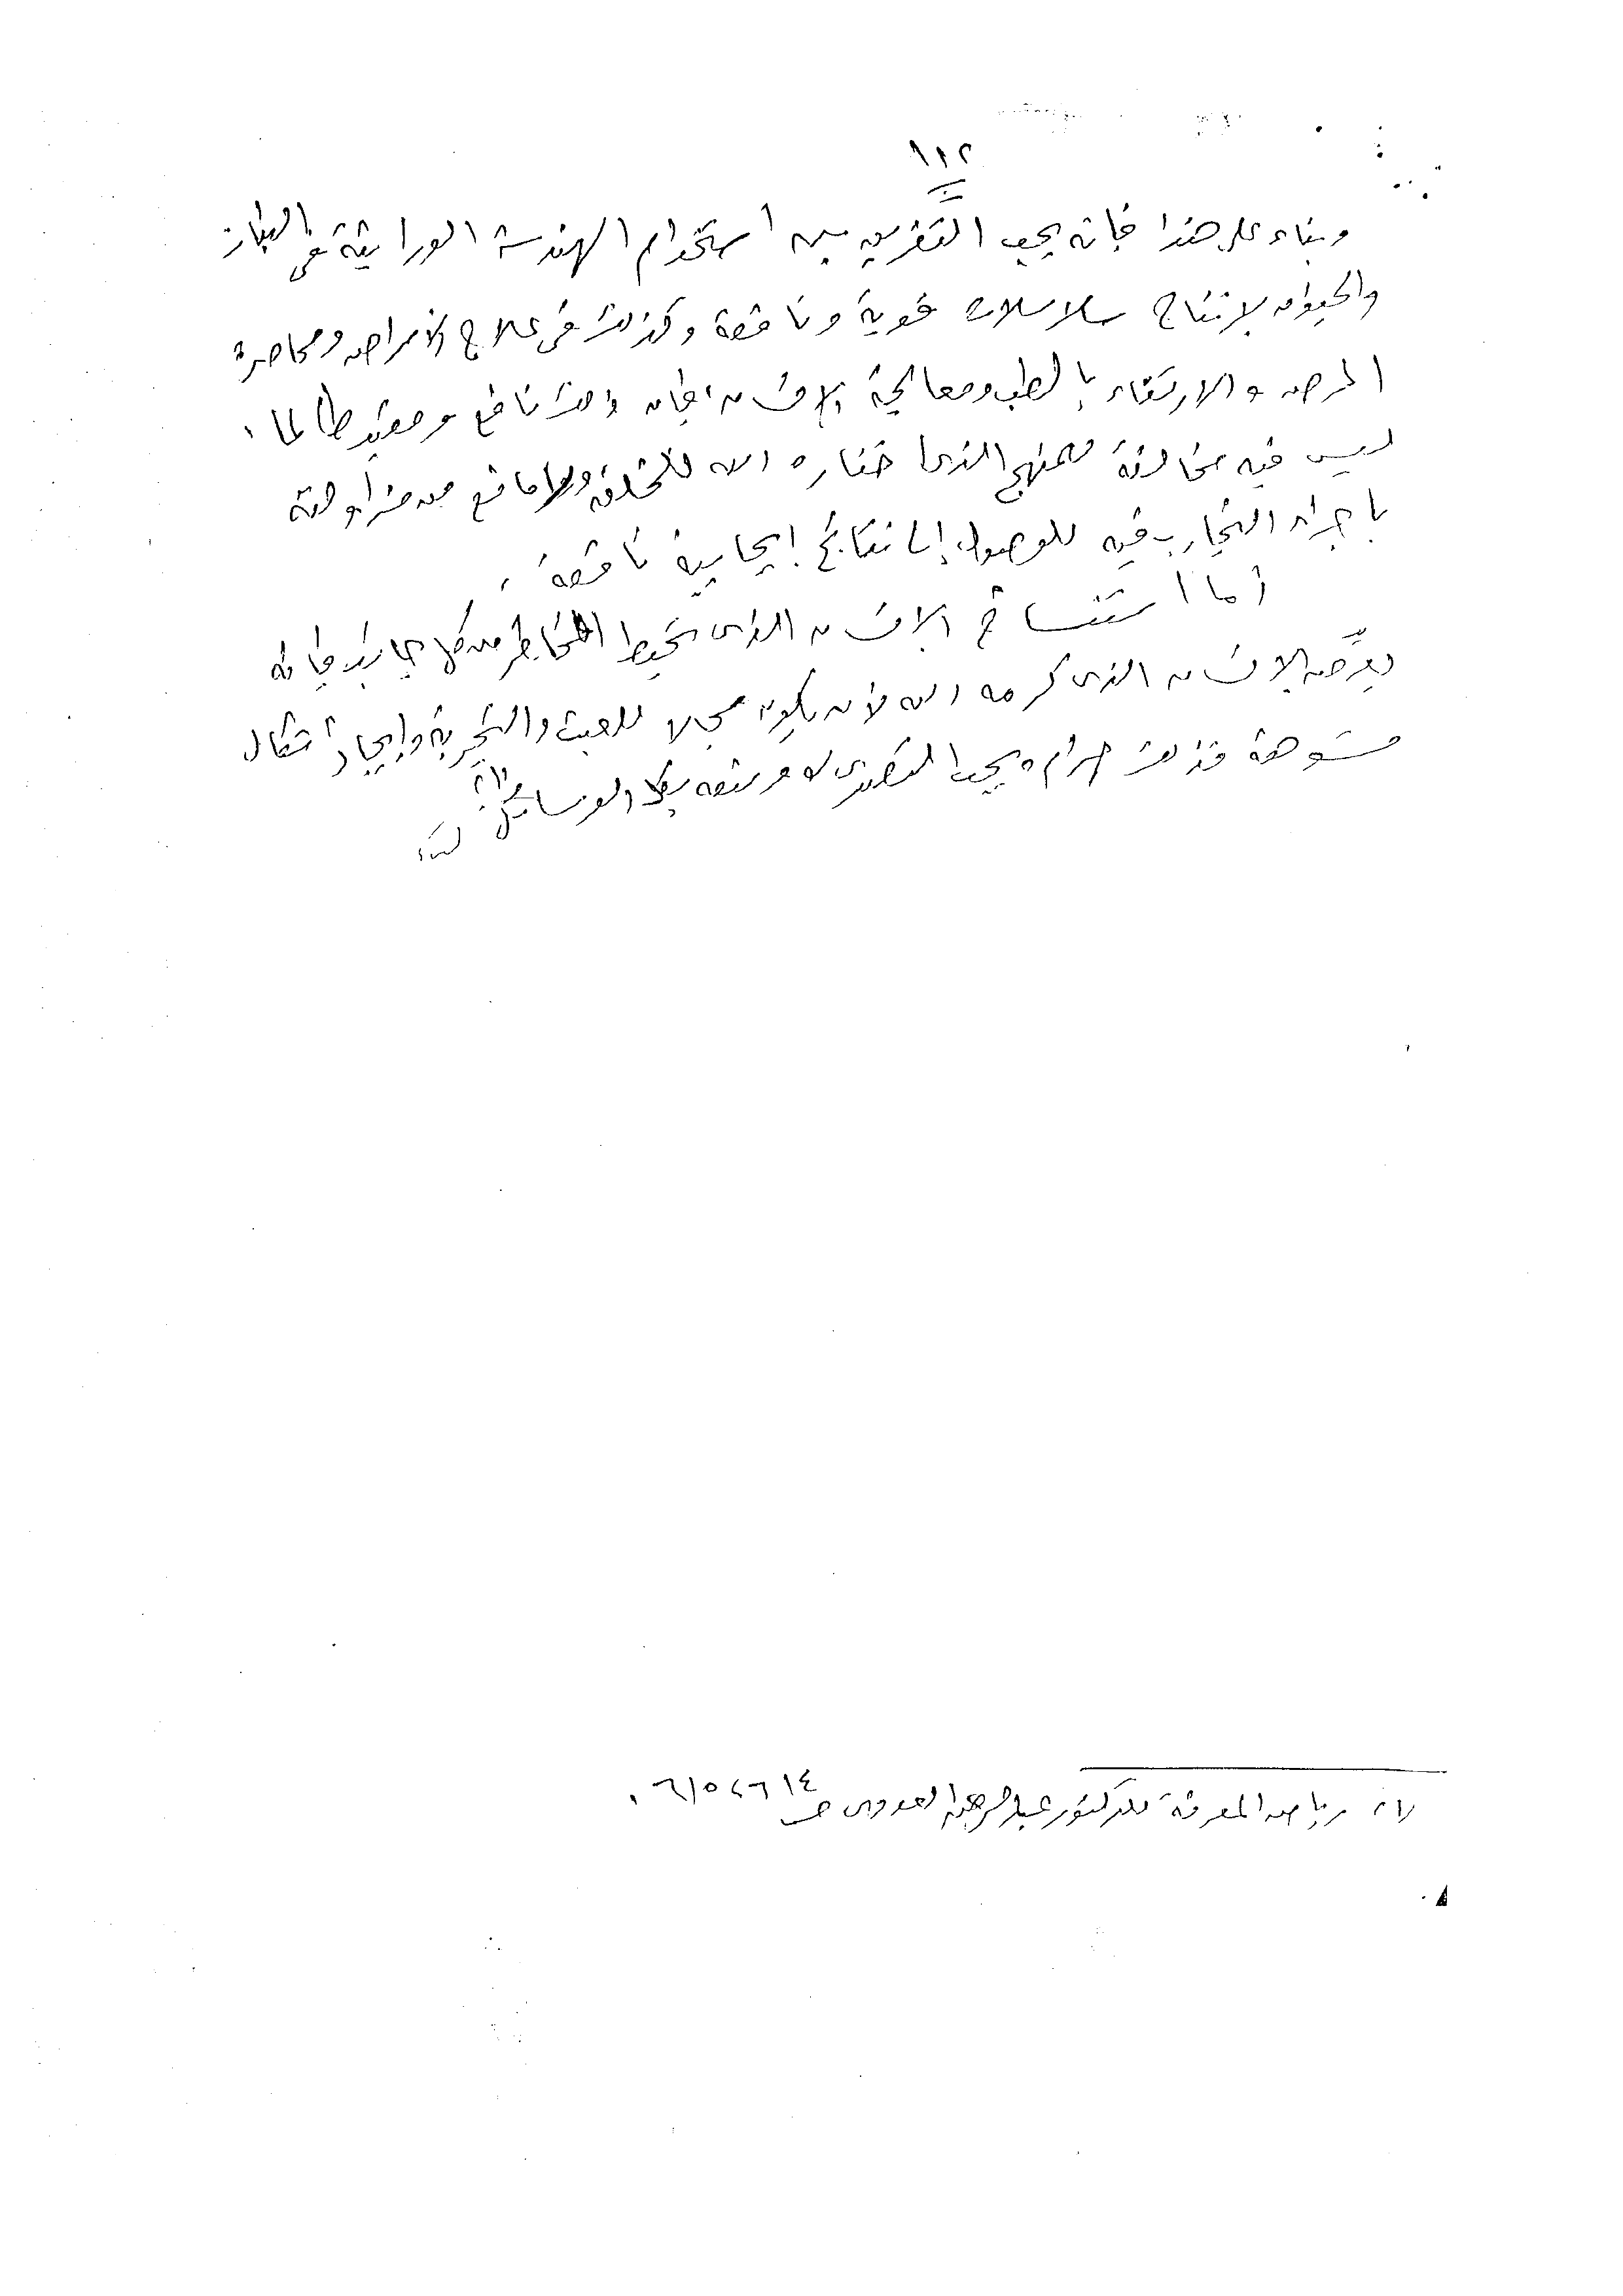 ١١٢
وبناء على هذا فإنه يجب التفريق بين استخدام الهندسة الوراثية في النبات
والحيوان لإنتاج سلالات قوية ونافعة وكذلك في علاج الأمراض ومحاصرة
المرض والارتقاء بالطب ومعالجة الإنسان فإن ذلك نافع ومفيد طالما
ليس فيه مخالفة للمنهج الذي اختاره الله للخلق ولا مانع من مزاولته
بإجراء التجارب فيه للوصول إلى نتائج إيجابية نافعة .
أما استنساخ الإنسان الذي تحيطه المخاطر من كل جانب فإنه
يعرّض الإنسان الذي كرمه الله لأن يكون مجالا للعبث والتجربة وإيجاد أشكال
مشوهة فذلك حرام ويجب التصدي له ومنعه بكل الوسائل (١)
(١) رياض المعرفة للدكتور عبد الرحمن العدوى صـ